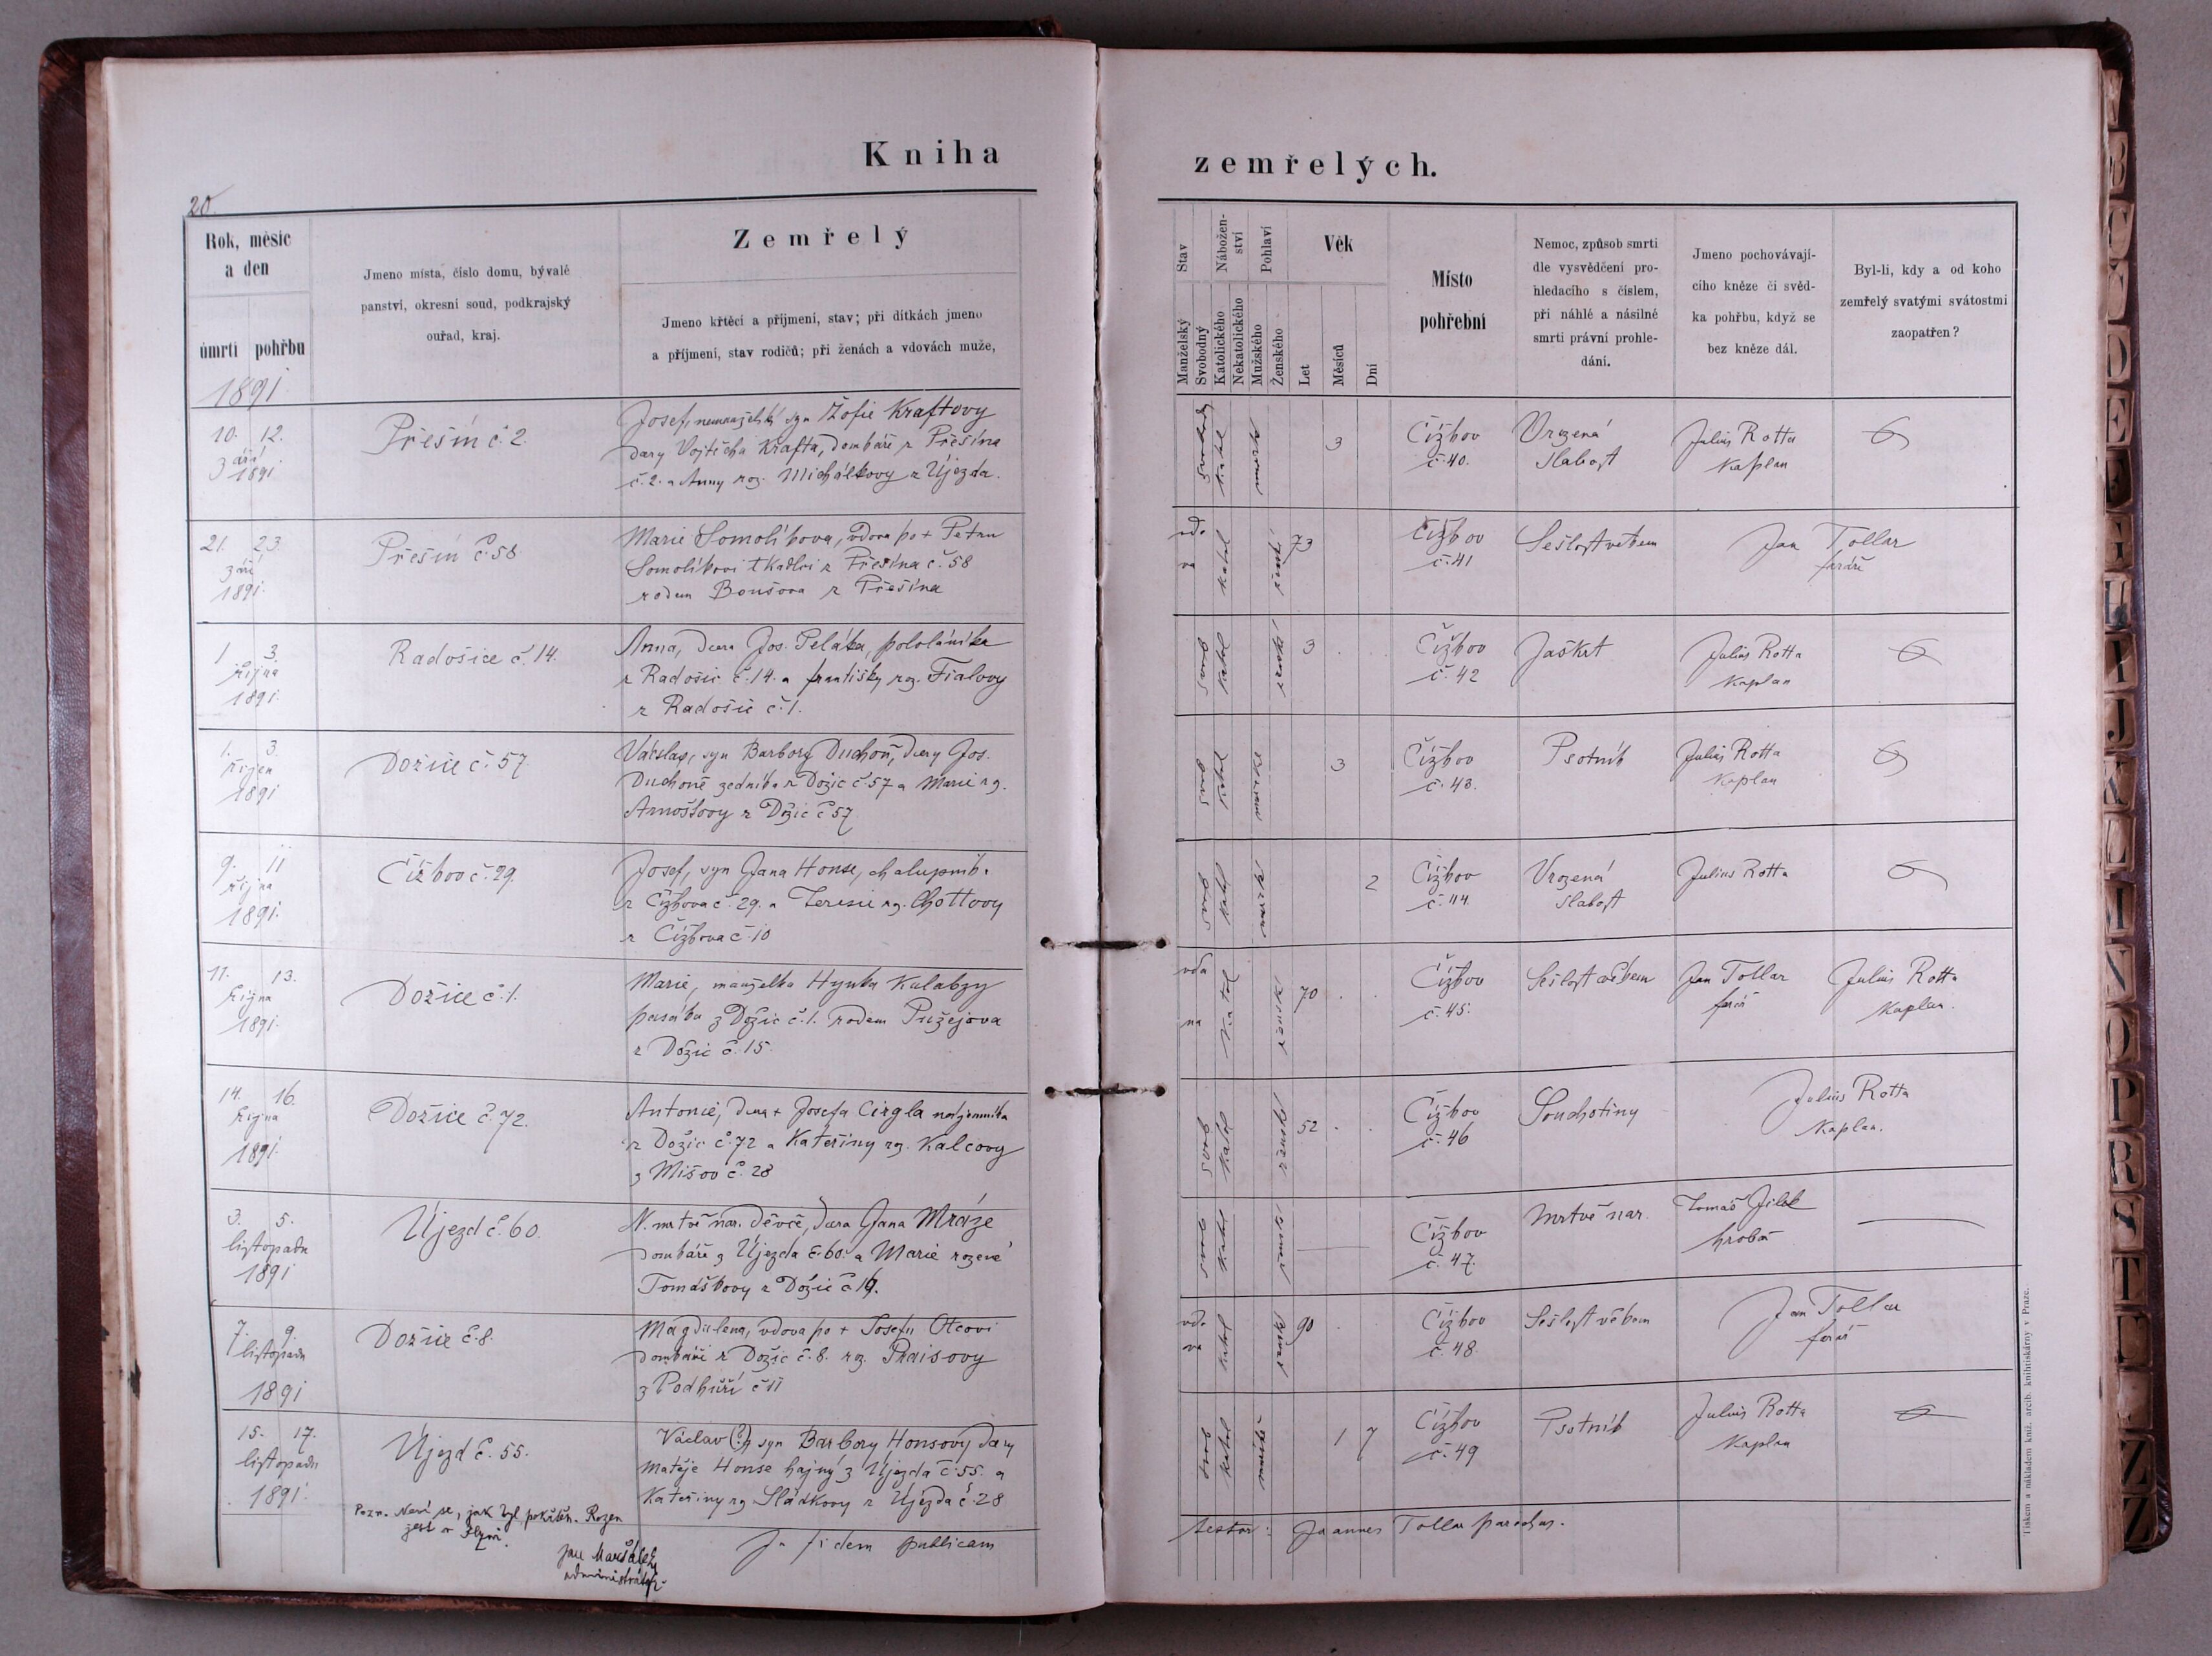 Kniha
zemřelých.
20.
Rok, měsíc
a den
úmrtí pohřbu
Jmeno místa, číslo domu, bývalé
panství, okresní soud, podkrajský
ouřad, kraj.
Zemřelý
Jmeno křtěcí a příjmení, stav; při dítkách jmeno
a příjmení, stav rodičů; při ženách a vdovách muže,
Stav
Manželský
Svobodný
Nábožen-
ství
Katolického
Nekatolického
Pohlaví
Mužského
Ženského
Věk
Let
Měsíců
Dní
Místo
pohřební
Nemoc, způsob smrti
dle vysvědčení pro-
hledacího s číslem,
při náhlé a násilné
smrti právní prohle-
dání.
Jmeno pochovávají-
cího kněze či svěd-
ka pohřbu, když se
bez kněze dál.
Byl-li, kdy a od koho
zemřelý svatými svátostmi
zaopatřen?
1891.
10. 12.
září
1891
Přešín č. 2.
Josef, nemanželský syn Žofie Kraftovy
dcery Vojtěcha Krafta, domkáře z Přešína
č. 2. a Anny roz. Michálkovy z Újezda.
katol
mužsk
3
Čížkov
č. 40.
Vrozená
slabost
Julius Rotta
Kaplan
21. 23.
září
1891.
Přešín č. 58
Marie Somolíkova, vdova po + Petru
Somolíkovi tkadlci z Přešína č. 58
rodem Boušova z Přešína
vdo
va
katol
žensk
73
Čížkov
č. 41
Sešlost věkem
Jan Tollar
farář
1. 3.
října
1891.
Radošice č. 14.
Anna, dcera Jos. Peláka, pololáníka
z Radošic č. 14. a Františky roz. Fialovy
z Radošic č. 1.
svob
katol
žensk
3
Čížkov
č. 42
Jaškrt
Julius Rotta
Kaplan
1. 3.
říjen
1891
Dožice č. 57
Václav, syn Barbory Duchoň, dcery Jos.
Duchoně zedníka z Dožic č. 57 a Marie rz.
Arnoštovy z Dožic č. 57
svob
katol
mužské
3
Čížkov
č. 43.
Psotník
Julius Rotta
Kaplan
9. 11
října
1891.
Čížkov č. 29.
Josef, syn Jana Honse, chalupník.
z Čížkova č. 29. a Terezie rz. Chottovy
z Čížkova č. 10
svob
katol
mužsk
2
Čížkov
č. 44.
Vrozená
slabost
Julius Rotta
11. 13.
října
1891.
Dožice č. 1.
Marie, manželka Hynka Kalabzy
pasáka z Dožic č. 1. rodem Pužejova
z Dožic č. 15.
vda
na
katol
žensk
70
Čížkov
č. 45.
Sešlost věkem
Jan Tollar
farář
Julius Rotta
Kaplan.
14. 16.
října
1891.
Dožice č. 72.
Antonie, dcera + Josefa Cirgla
z Dožic č. 72 a Kateřiny rz. Kalcovy
z Míšov č. 28
svob
katol
žensk
52
Čížkov
č. 46
Souchotiny
Julius Rotta
Kaplan.
3. 5.
listopadu
1891
Újezd č. 60.
N. mrtvě nar. děvče, dcera Jana Mráze
domkáře z Újezda č. 60. a Marie rozené
Tomáškovy z Dožic č. 16.
svob
katol
žensk
Čížkov
č. 47.
Mrtvě nar.
Tomáš Jílek
hrobař
7. 9.
listopadu
1891
Dožice č. 8.
Magdalena, vdova po + Josefu Otcovi
domkáři z Dožic č. 8. rz. Praisovy
z Podhůří č. 11
vdo
va
katol
žensk
90
Čížkov
č. 48.
Sešlost věkem
Jan Tollar
farář
15. 17.
listopadu
1891.
Újezd č. 55.
Václav (?) syn Barbory Honsovy dcery
Matěje Honse hajný z Újezda č. 55. a
Kateřiny rz. Sládkovy z Újezda č. 28
svob
katol
mužsk
1 7
Čížkov
č. 49
Psotník
Julius Rotta
Kaplan
Pozn. Neví se, jak byl pokřtěn. Rozen
jest v Plzni.
Jan Maršálek,
administrátor.
In fidem publicam
testor: Joannes Tollar parochus.
Tiskem a nákladem kníž. arcib. knihtiskárny v Praze.
B C D E G H I J K L M N O P R S T Z